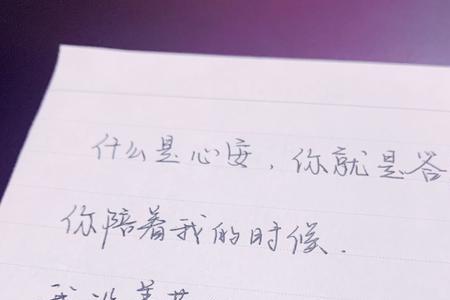 什么是心安,你就是答
你陪着我的时候.
我